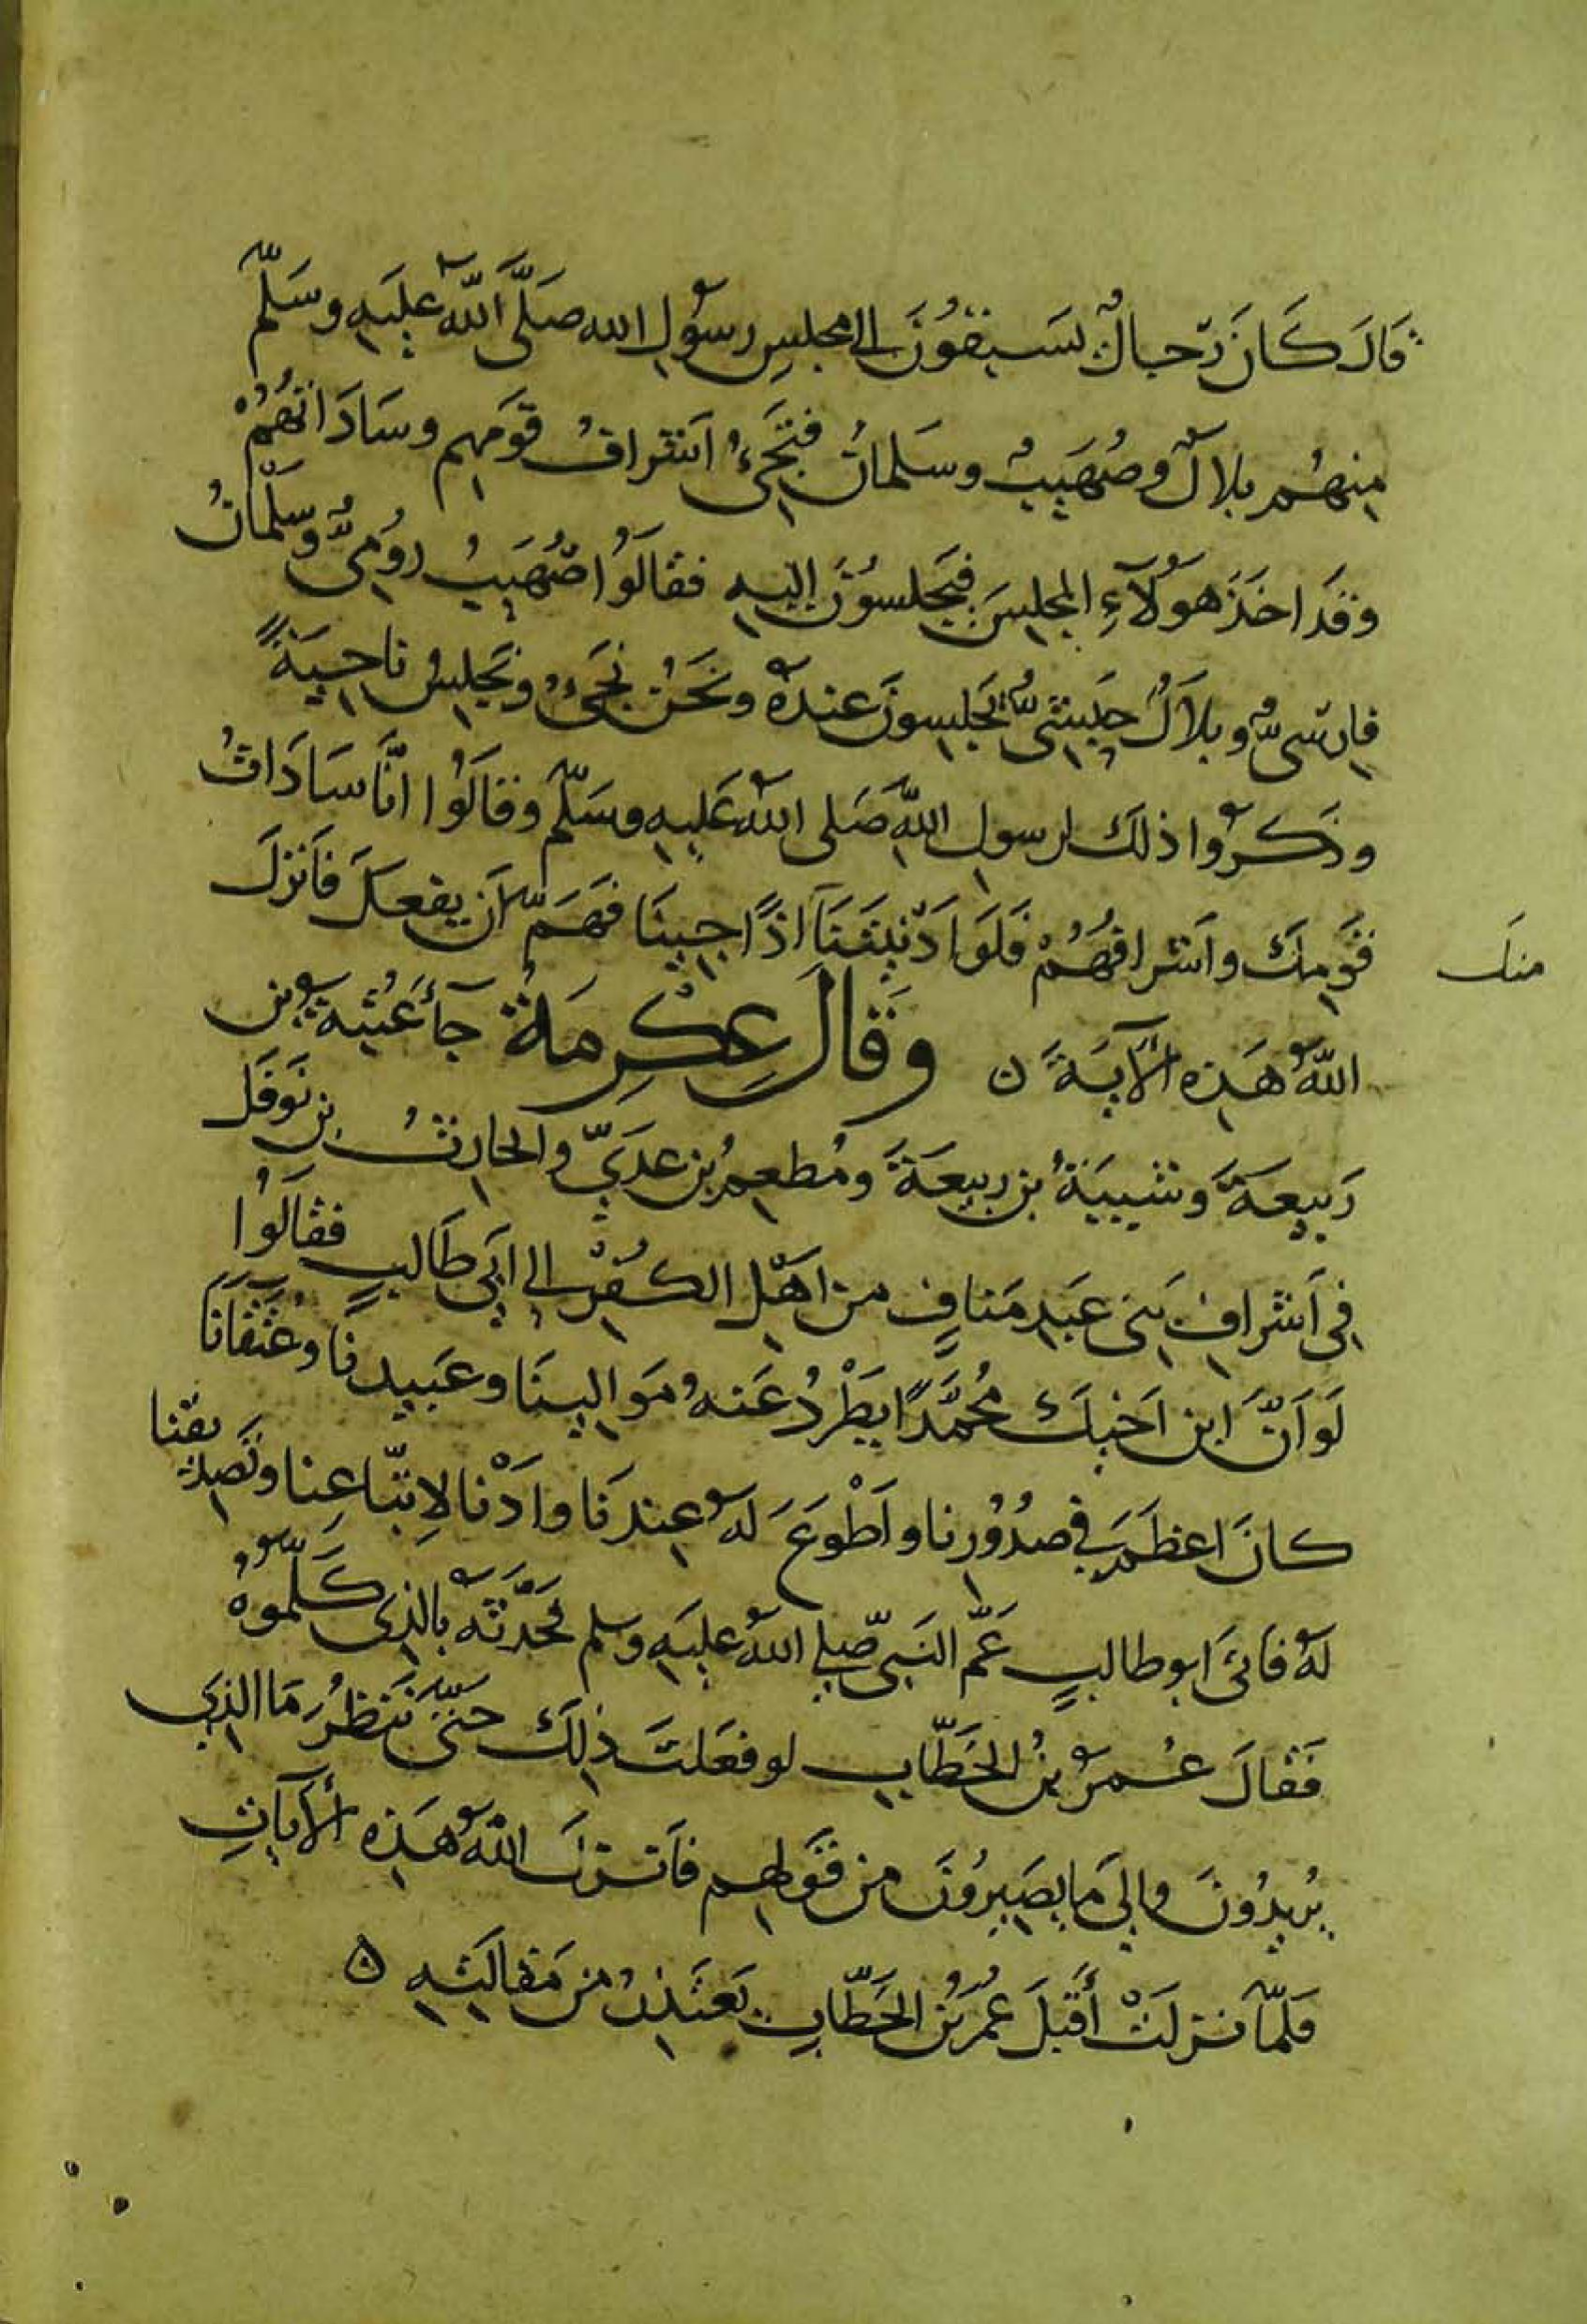 قَالَ كَانَ رِجَالٌ يَسبِقُونَ إلى مجلسِ رسُولِ الله صَلَّى اللّهُ عليَهِ وسَلّم
مِنهُم بلالٌ وصُهَيبٌ وسَلمانُ فَيَجَىءُ اَشرافُ قَومِهِم وسَادَاتُهُمْ
وقَد اخَذَ هَؤُلآءِ المجلِسَ فَيَجلسُونَ إليهِ فقالَوُا صُهَيبُ رُومِىٌّ وسَلمانُ
فارسِىٌّ وبلاَلُ حَبشىٌّ يَجلِسونَ عندَهُ ونَحَنُ نجَىءُ ونجَلِسُ ناحِيَةً
وذَكرُوا ذلكَ لرسولِ اللهِ صَلى اللهُ عَليهِ وسَلّم وقالَوُا انَّا سَادَاتُ
قَومِكَ واَشرافُهُمْ فَلَو اَدْنَيتَنَآ اذًا جِينَا فَهَمّ اَن يفعَلَ فاَنزلَ
منك
اللهُ هَذِهِ الآيةَ ن وقَالَ عِكْرِمَةُ جآءَ عُتبةُ بن
رَبيعَةَ وشَيبَةُ بن رَبيعَةَ ومُطعِمُ بن عَدِيّ والحارِثُ بن نَوفَل
فِى اَشرافِ بَنى عَبدِ مَنافٍ من اهْلِ الكُفْرِ إلى ابَى طَالبٍ فقالَوُا
لَو اَنّ ابن اَخيكَ مُحمَّدًا يَطْرُدُ عَنهُ مَوالينَا وعَبيدنَا وعُتَقَانَا
كانَ اعظَمَ في صُدُورِنا واَطْوعَ لهُ عِندَنَا واَدْنا لاِتبّاعِنا وتَصدِيقنا
لهُ فاَتىَ ابو طالبٍ عَمّ النَبىّ صلى اللهُ عليَهِ وسلم فحَدّثَهُ بالذِى كَلّمُوهُ
فَقالَ عُمرُ بنُ الخَطّابِ لو فعَلتَ ذلِكَ حَتىّ نَنظُرَ مَا الذِى
يُريدُونَ والَى مَا يَصِيرُونَ من قَولهِم فاَنزلَ اللهُ هَذِهِ الآياتِ
فَلمّا نزلَتْ أَقبَلَ عُمَرُ بنُ الخَطّابِ يَعتَذِرُ من مَقالَتِهِ ن